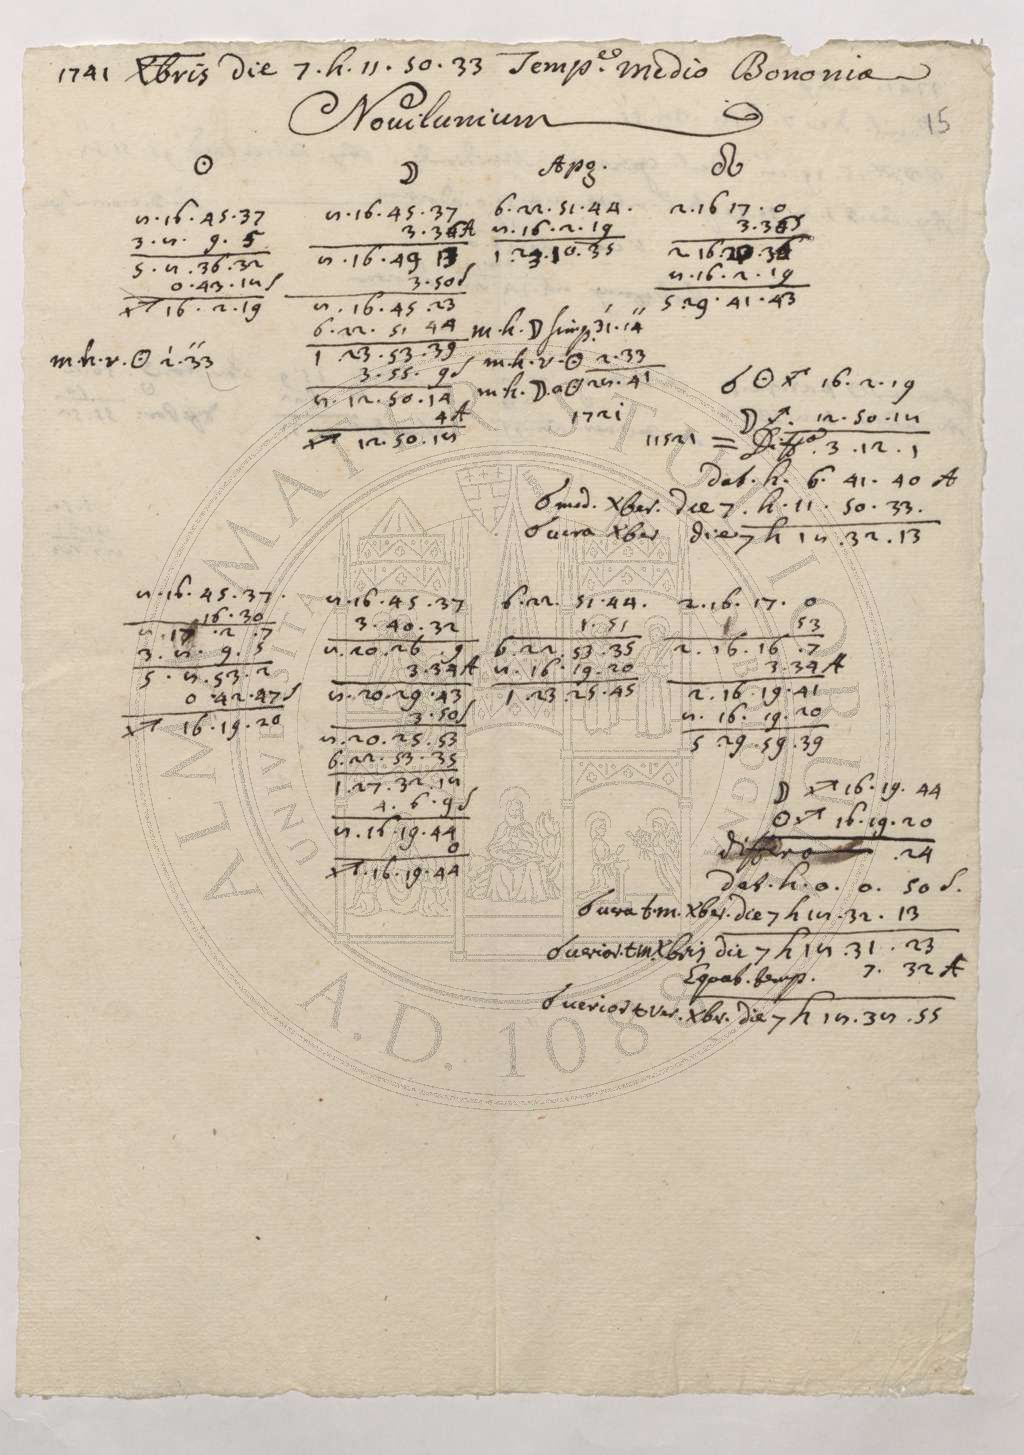 1741 Xbris die 7. h. 11. 50. 33 Temp.e Medio Bononiæ
15
Novilunium
☉ ☽ Apg. ☊
8. 16. 45. 37 8. 16. 45. 37 6. 22. 51. 44. 2. 16 17. 0
3. 8. 9. 5 3. 36 A 8. 16. 2. 19 3. 36 S
5. 8. 36. 32 8. 16. 49 13 1. 23. 10. 35 2 16 20. 36
0. 43. 18 S 3. 50 S 8. 16. 2. 19
♐ 16. 2. 19 8. 16. 45. 23 5 29. 41. 43
6. 22. 51 44 m. h. ☽ simp. 31. 14
m. h. v. ☉ 2. 33 1 23. 53. 39 m. h. v. ☉ 2. 33
3. 55. 9 S m. h. ☽. a ☉ 28. 41 ☌ ☉ ♐ 16. 2. 19
8. 12. 50. 14 1721
4 A ☽ ♐. 12. 50. 18
♐ 12. 50. 18 11521 = Diff.a 3. 12. 1
dat. h. 6. 41. 40 A
☌ med. Xber. die 7. h. 11. 50. 33.
☌ vera Xber die 7 h 18. 32. 13
8. 16. 45. 37. 8. 16. 45. 37 6. 22. 51. 44. 2. 16. 17. 0
16. 30 3. 40. 32 1. 51 53
8. 17. 2. 7 8. 20. 26. 9 6. 22. 53. 35 2. 16. 16. 7
3. 8. 9. 5 3. 34 A 8. 16. 19. 20 3. 34 A
5. 8. 53. 2 8. 20. 29. 43 1. 23. 25. 45 2. 16. 19. 41
0. 42. 47 S 3. 50 S 8. 16. 19. 20
♐ 16. 19. 20 8. 20. 25. 53 5 29. 59. 39
6. 22. 53. 35
1. 27. 32. 18 ☽ ♐ 16. 19. 44
4. 6. 9 S ☉ ♐ 16. 19. 20
8. 16. 19. 44 differa 24
0
♐. 16. 19. 44 dat. h. 0. 0. 50 S.
☌ vera t. m. Xber. die 7 h 18. 32. 13
☌ verior. t. m. Xbris die 7 h 18. 31. 23
Equat. temp. 7. 32 A
☌ verior t ver. Xbr. die 7 h 18. 38. 55
ALMA MATER STUDIORUM
UNIVERSITÀ DI BOLOGNA
A.D. 1088